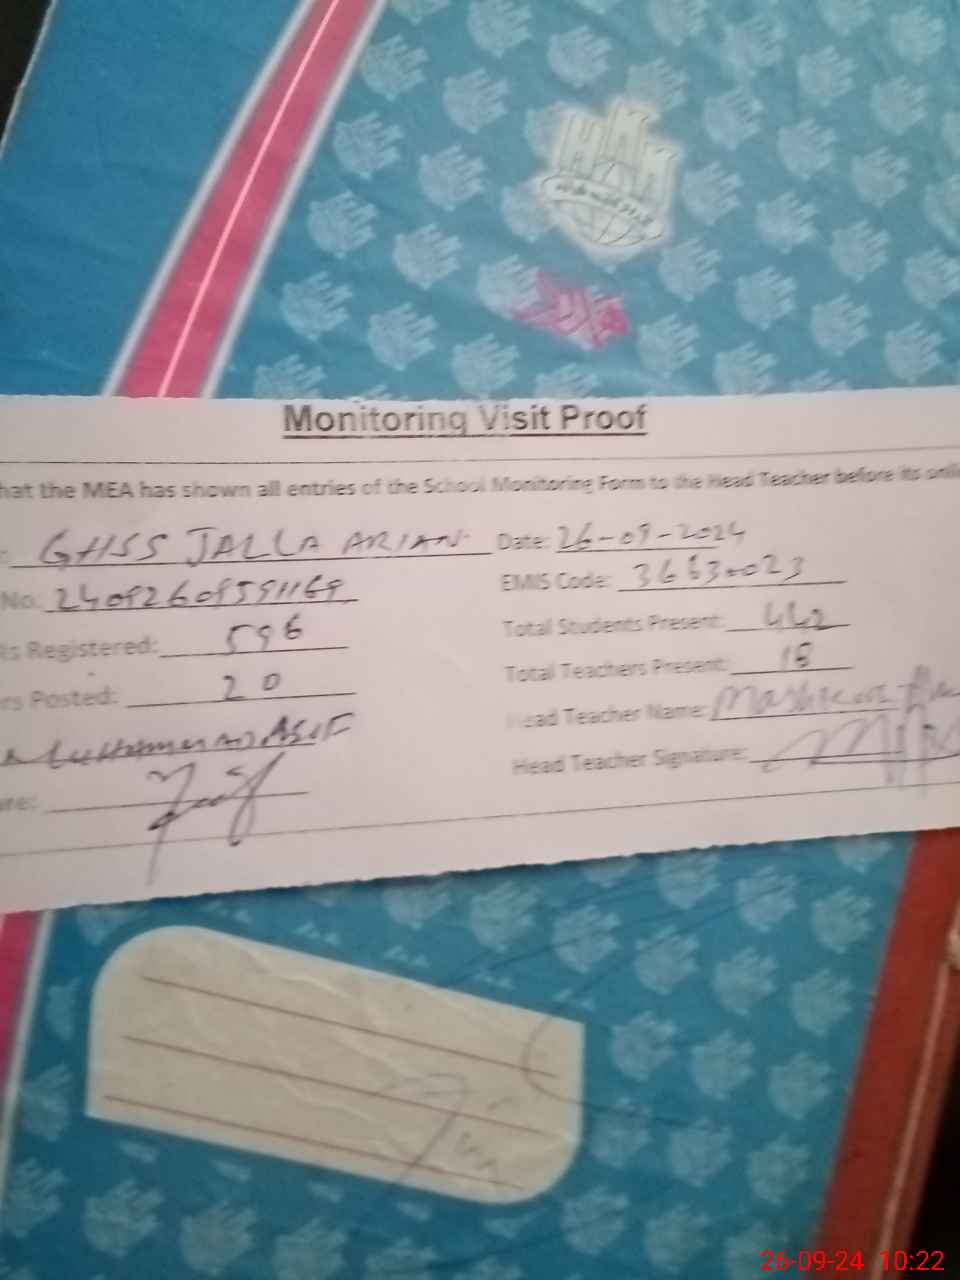 Monitoring Visit Proof
hat the MEA has shown all entries of the School Monitoring Form to the Head Teacher before its onli
: GHSS JALLA ARIAN. Date: 26-09-2024
No: EMIS Code: 36630023
ts Registered: 596 Total Students Present: 442
rs Posted: 20 Total Teachers Present: 18
Muhammad ASIF Head Teacher Name:
ure: Head Teacher Signature:
26-09-24 10:22